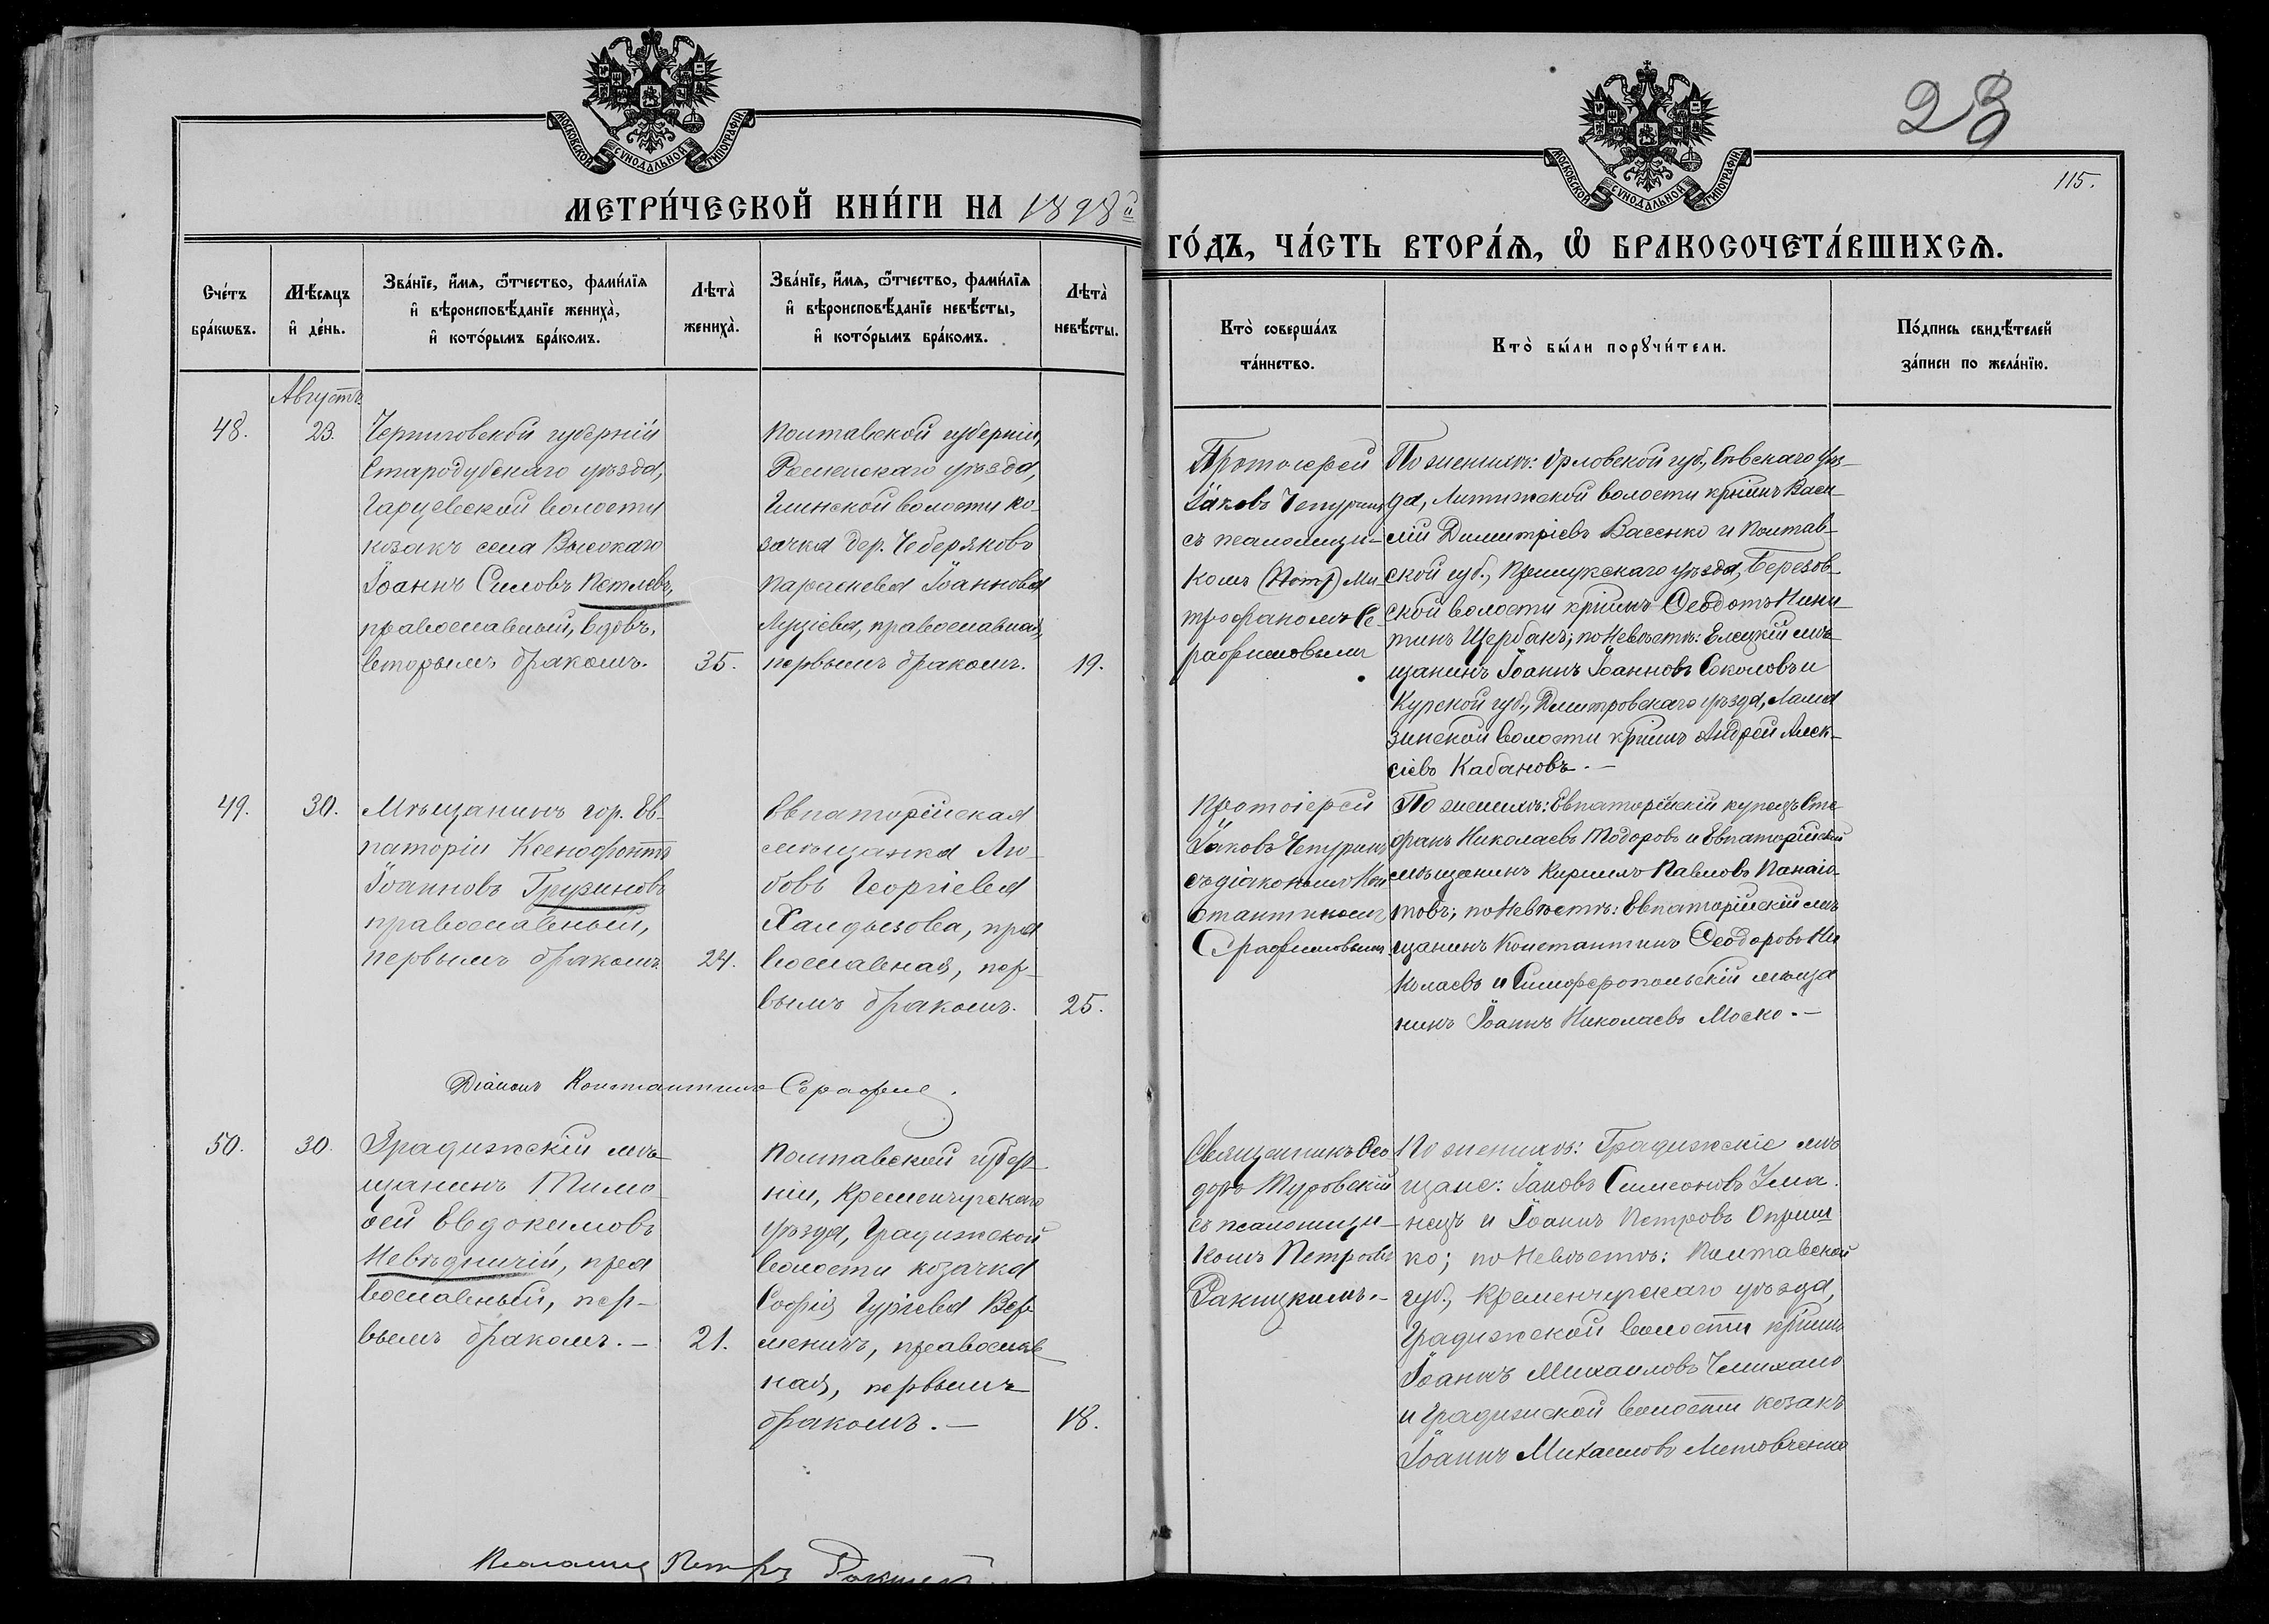 МОСКОВСКОЙ СѴНОДАЛЬНОЙ ТИПОГРАФІИ
МЕТРИ́ЧЕСКОЙ КНИ́ГИ НА 1898й
Сче́тъ бра́кѡвъ.
Мѣ́сяцъ и҆ де́нь.
Зва́нїе, и҆́мѧ, ѻ҆́тчество, фами́лїѧ
и҆ вѣроисповѣ́данїе жениха̀,
и҆ кото́рымъ бра́комъ.
Лѣта̀ жениха̀.
Зва́нїе, и҆́мѧ, ѻ҆́тчество, фами́лїѧ
и҆ вѣроисповѣ́данїе невѣ́сты,
и҆ кото́рымъ бра́комъ.
Лѣта̀ невѣ́сты.
Августъ
48.
23.
Черниговской губерніи
Стародубскаго уѣзда,
Гарцевской волости
козакъ села Высокаго
Іоаннъ Силовъ Петлевъ,
православный, вдовъ,
вторымъ бракомъ.
35.
Полтавской губерніи,
Роменскаго уѣзда,
Глинской волости ко-
зачка дер. Чеберяковъ
Параскева Іоаннова
православная,
первымъ бракомъ.
19.
49.
30.
Мѣщанинъ гор. Ев-
паторіи Ксенофонтъ
Іоанновъ Грузиновъ
православный,
первымъ бракомъ
24.
Евпаторійская
мѣщанка Лю-
бовь Георгіева
Халдызова, пра
вославная, пер-
вымъ бракомъ.
25.
Діаконъ Константинъ Серафим.
50.
30.
Градижскій мѣ-
щанинъ Тимо-
ѳей Евдокимовъ
Невѣдничій, пра
вославный, пер-
вымъ бракомъ.—
21.
Полтавской губер-
ніи, Кременчугскаго
уѣзда, Градижской
волости козачка
Софія Гуріева Вер-
меничъ, православ
ная, первымъ
бракомъ.—
18.
Псаломщ Петръ
МОСКОВСКОЙ СѴНОДАЛЬНОЙ ТИПОГРАФІИ
23
115.
ГО́ДЪ, ЧА́СТЬ ВТОРА́Ѧ, Ѽ БРАКОСОЧЕТА́ВШИХСѦ.
Кто̀ соверша́лъ
та́инство.
Кто̀ бы́ли порꙋчи́тели.
По́дпись свидѣ́телей
за́писи по жела́нїю.
Протоіерей
Іаковъ Чепуринъ
съ псаломщи-
комъ (Петр) Ми-
трофаномъ Се-
рафимовымъ
По женихѣ: Орловской губ., Сѣвскаго уѣз-
да, Литижской волости кр҃інинъ Васи-
лій Димитріевъ Васенко и Полтав-
ской губ., Прилукскаго уѣзда, Березов-
ской волости кр҃інинъ Ѳеодотъ Ники-
тинъ Щербакъ; по невѣстѣ: Елецкій мѣ-
щанинъ Іоаннъ Іоанновъ Соколовъ и
Курской губ., Дмитровскаго уѣзда,
волости кр҃інинъ Андрей Алек-
сіевъ Кабановъ.—
Протоіерей
Іаковъ Чепуринъ
съ діакономъ Кон
стантиномъ
Серафимовымъ
По женихѣ: Евпаторійскій купецъ Сте
фанъ Николаевъ Тодоровъ и Евпаторійскій
мѣщанинъ Кириллъ Павловъ Панаіо-
товъ; по невѣстѣ: Евпаторійскій мѣ
щанинъ Константинъ Ѳеодоровъ Ни
колаевъ и Симферопольскій мѣща
нинъ Іоаннъ Николаевъ Моско.—
Священникъ Ѳео
доръ Туровскій
съ псаломщи-
комъ Петромъ
Ракицкимъ.—
По женихѣ: Градижскіе мѣ
щане: Іаковъ Симеоновъ Ума-
нецъ и Іоаннъ Петровъ
ко; по невѣстѣ: Полтавской
губ., Кременчугскаго уѣзда,
Градижской волости кр҃інинъ
Іоаннъ Михаиловъ
и Градижской волости козакъ
Іоаннъ Михаиловъ Литовченко